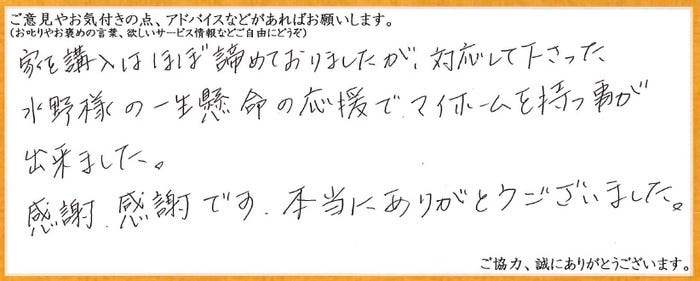 ご意見やお気付きの点、アドバイスなどがあればお願いします。
(お叱りやお褒めの言葉、欲しいサービス情報などご自由にどうぞ)
家を講入はほぼ諦めておりましたが、対応して下さった
水野様の一生懸命の応援でマイホームを持つ事が
出来ました。
感謝、感謝です、本当にありがとうございました。
ご協力、誠にありがとうございます。